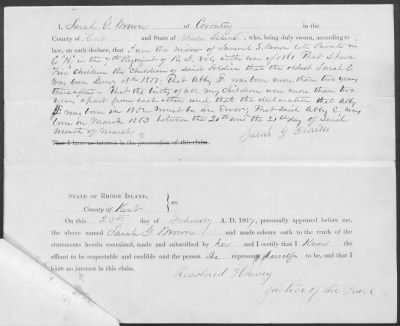 I, Sarah G. Brown of Coventry in the
County of Kent and State of Rhode Island, who, being duly sworn, according to
law, on oath declare, that I am the widow of Samuel Brown late Private in
Co "K" in the 7th Regiment of R. I. Vols war of 1861 That I have
two Children the Children of said Soldier than the oldest Sarah E.
was born June 18th 1851. That Abby F. was born more than two years
thereafter. That the births of all my Children were more than two
years apart from each other and that the declaration that Abby
F. was born in 1852 must be an Error, The said Abby E. was
born on March 1853 between the 20th and the 21st day of said
Month of March
Sarah G Brown
That I have no interest in the prosecution of this claim.
STATE OF RHODE ISLAND,
County of Kent
ss.
On this 23rd day of February A. D. 1867, personally appeared before me,
the above named Sarah G Brown and made solemn oath to the truth of the
statements herein contained, made and subscribed by her and I certify that I Know the
affiant to be respectable and credible and the person She represents herself to be, and that I
have no interest in this claim.
Justice of the Peace